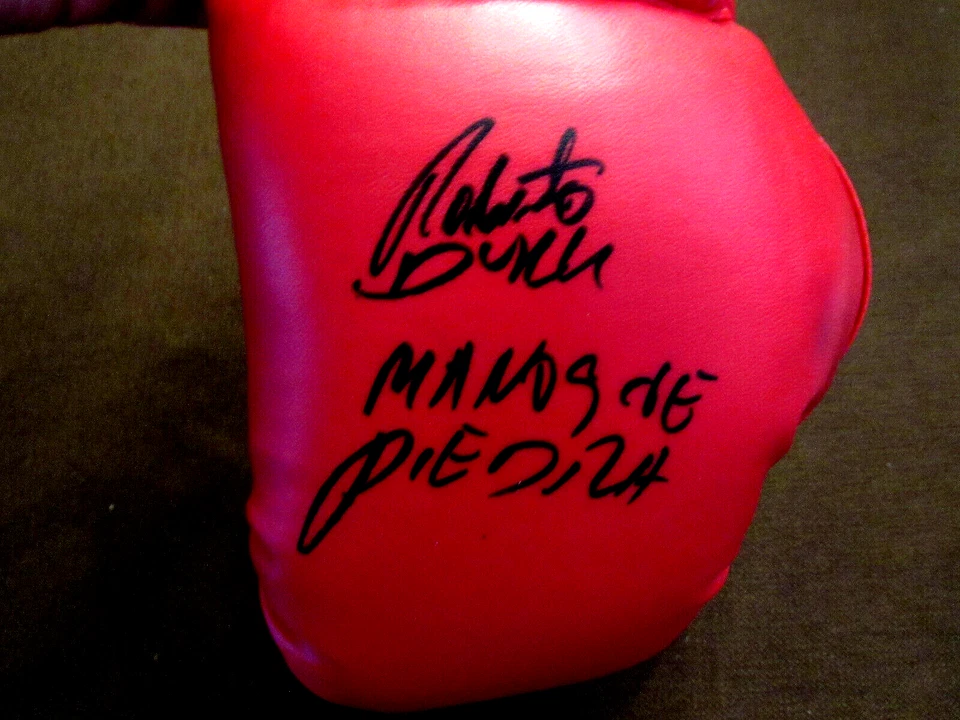 Roberto
DURAN
MANOS DE
PIEDRA